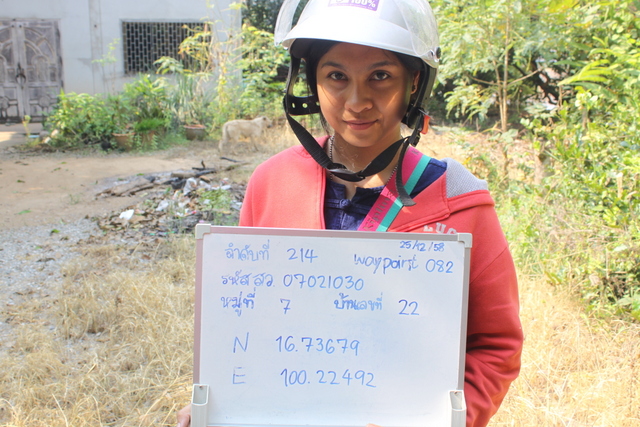 25/12/58
ลำดับที่ 214 waypoirst 082
รหัส สว 07021030
หมู่ที่ 7 บ้านเลขที่ 22
N 16.73679
E 100.22492